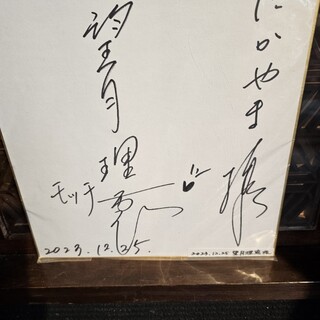 たかやま様
望月理恵
モッチ
2023.12.25.
2023.12.25 望月理恵様